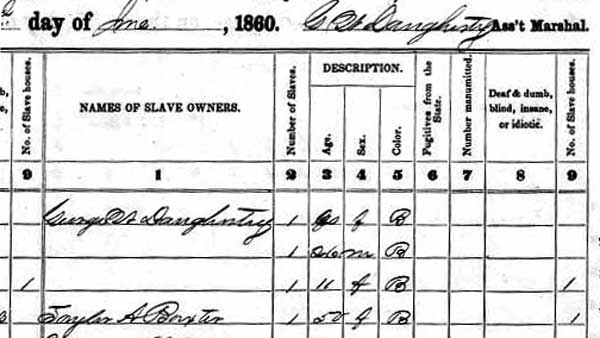 day of June, 1860. G W Daughistry Ass't Marshal.
No. of Slave houses.
NAMES OF SLAVE OWNERS.
Number of Slaves.
DESCRIPTION.
Age.
Sex.
Color.
Fugitives from the State.
Number manumitted.
Deaf & dumb, blind, insane, or idiotic.
No. of Slave houses.
9 1 2 3 4 5 6 7 8 9
George W Daughistry 1 f B
1 26 m B
1 1 11 f B 1
Taylor A Baxter 1 50 f B 1